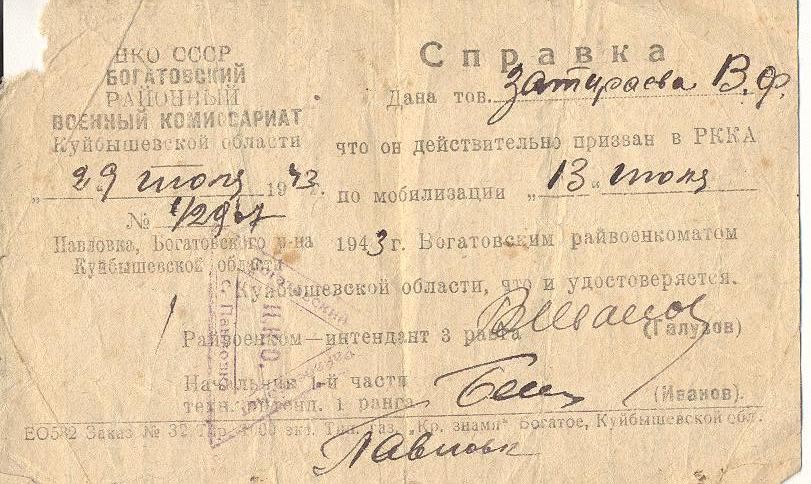 НКО СССР
БОГАТОВСКИЙ
РАЙОННЫЙ
ВОЕННЫЙ КОМИССАРИАТ
Куйбышевской области
„29 июля 1943 г.
№
Павловка, Богатовского р-на
Куйбышевской области
Справка
Дана тов. В.Ф.
что он действительно призван в РККА
по мобилизации „13“ июля
1943 г. Богатовским райвоенкоматом
Куйбышевской области, что и удостоверяется.
Райвоенком—интендант 3 ранга (Галузов)
Начальник 1-й части
техн. интенд. 1 ранга (Иванов).
ЕО582 Заказ № 32 экз. Тип. газ. „Кр. знамя“ Богатое, Куйбышевской обл.
Н.К.О.